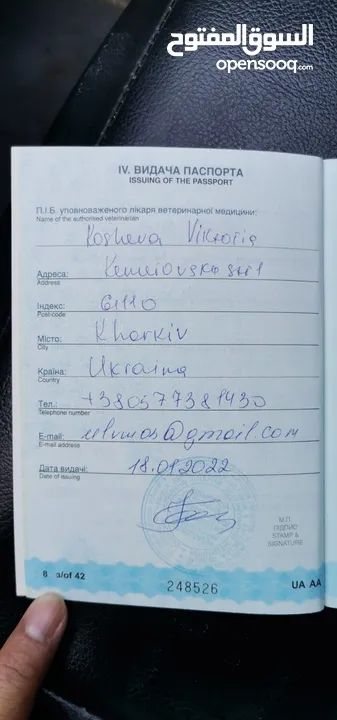 السوق المفتوح
opensooq.com
IV. ВИДАЧА ПАСПОРТА
ISSUING OF THE PASSPORT
П.І.Б. уповноваженого лікаря ветеринарної медицини:
Name of the authorised veterinarian
Kosheva Viktoria
Адреса:
Address
Індекс: 61110
Post-code
Місто: Kharkiv
City
Країна: Ukraina
Country
Тел.: +380577381430
Telephone number
E-mail: @gmail.com
E-mail address
Дата видачі: 18.01.2022
Date of issuing
М.П.
ПІДПИС
STAMP &
SIGNATURE
6 з/of 42
248526
UA AA